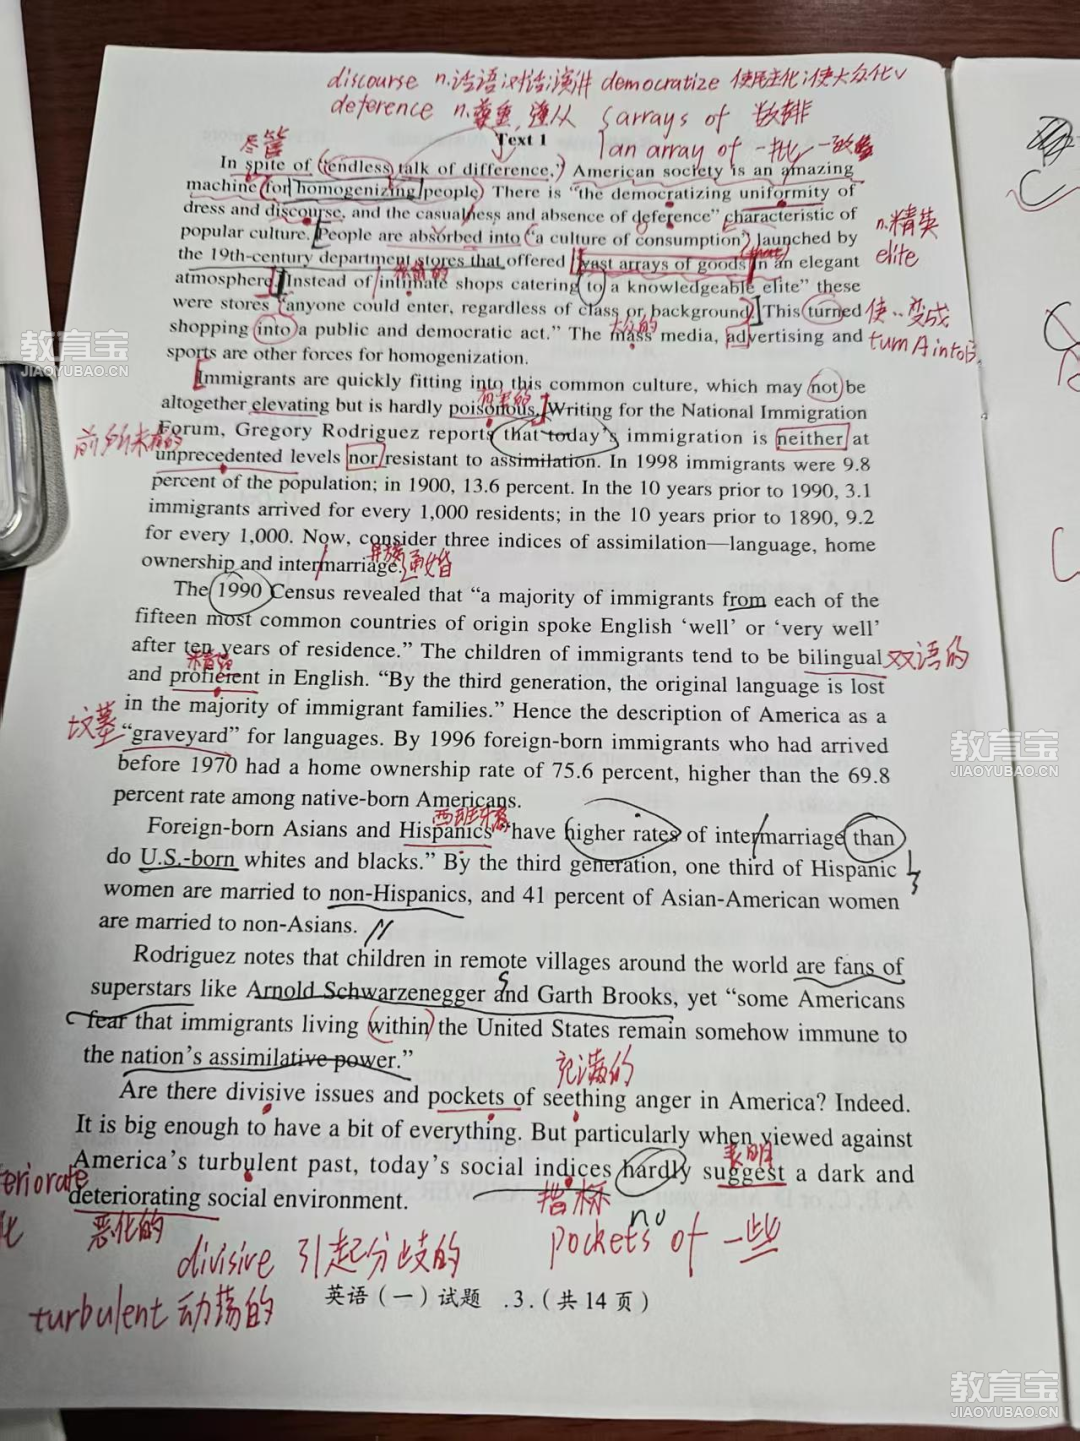 discourse n.话语;对话;演讲 democratize 使民主化;使大众化
deference n.尊重,强从 arrays of 数排
尽管 Text 1 an array of 一批 一致
In spite of “endless talk of difference,” American society is an amazing
machine for homogenizing people. There is “the democratizing uniformity of
dress and discourse, and the casualness and absence of deference” characteristic of
popular culture. People are absorbed into “a culture of consumption” launched by
n.精英
the 19th-century department stores that offered “vast arrays of goods in an elegant
elite
atmosphere. Instead of intimate shops catering to a knowledgeable elite” these
were stores “anyone could enter, regardless of class or background. This turned
使..变成
shopping into a public and democratic act.” The mass media, advertising and
大众的
turn A into B
sports are other forces for homogenization.
Immigrants are quickly fitting into this common culture, which may not be
altogether elevating but is hardly poisonous. Writing for the National Immigration
有害的
Forum, Gregory Rodriguez reports that today’s immigration is neither at
前所未有的
unprecedented levels nor resistant to assimilation. In 1998 immigrants were 9.8
percent of the population; in 1900, 13.6 percent. In the 10 years prior to 1990, 3.1
immigrants arrived for every 1,000 residents; in the 10 years prior to 1890, 9.2
for every 1,000. Now, consider three indices of assimilation—language, home
ownership and intermarriage.
异族通婚
The 1990 Census revealed that “a majority of immigrants from each of the
fifteen most common countries of origin spoke English ‘well’ or ‘very well’
after ten years of residence.” The children of immigrants tend to be bilingual
双语的
and proficient in English. “By the third generation, the original language is lost
in the majority of immigrant families.” Hence the description of America as a
坟墓
“graveyard” for languages. By 1996 foreign-born immigrants who had arrived
before 1970 had a home ownership rate of 75.6 percent, higher than the 69.8
percent rate among native-born Americans.
西班牙裔
Foreign-born Asians and Hispanics “have higher rates of intermarriage than
do U.S.-born whites and blacks.” By the third generation, one third of Hispanic
women are married to non-Hispanics, and 41 percent of Asian-American women
are married to non-Asians.
Rodriguez notes that children in remote villages around the world are fans of
superstars like Arnold Schwarzenegger and Garth Brooks, yet “some Americans
fear that immigrants living within the United States remain somehow immune to
the nation’s assimilative power.”
充满的
Are there divisive issues and pockets of seething anger in America? Indeed.
It is big enough to have a bit of everything. But particularly when viewed against
表明
America’s turbulent past, today’s social indices hardly suggest a dark and
eriorate
deteriorating social environment.
指标
化 恶化的 no
divisive 引起分歧的 pockets of 一些
turbulent 动荡的
英语(一)试题 .3.(共14页)
教育宝
JIAOYUBAO.CN
教育宝
JIAOYUBAO.CN
教育宝
JIAOYUBAO.CN